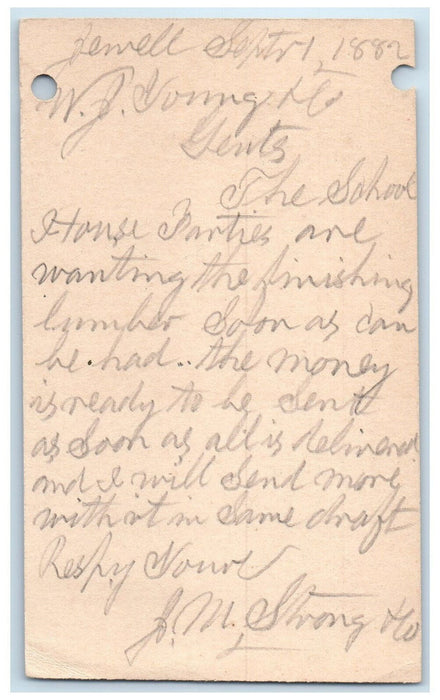 Jewell Septr 1, 1882
W. J. Young & Co
Gents
The School
House Parties are
wanting the finishing
lumber Soon as can
be had.. the money
is ready to be Sent
as Soon as all is delivered
and I will Send more
with it in Same draft
Respy Yours
J. M. Strong & Co